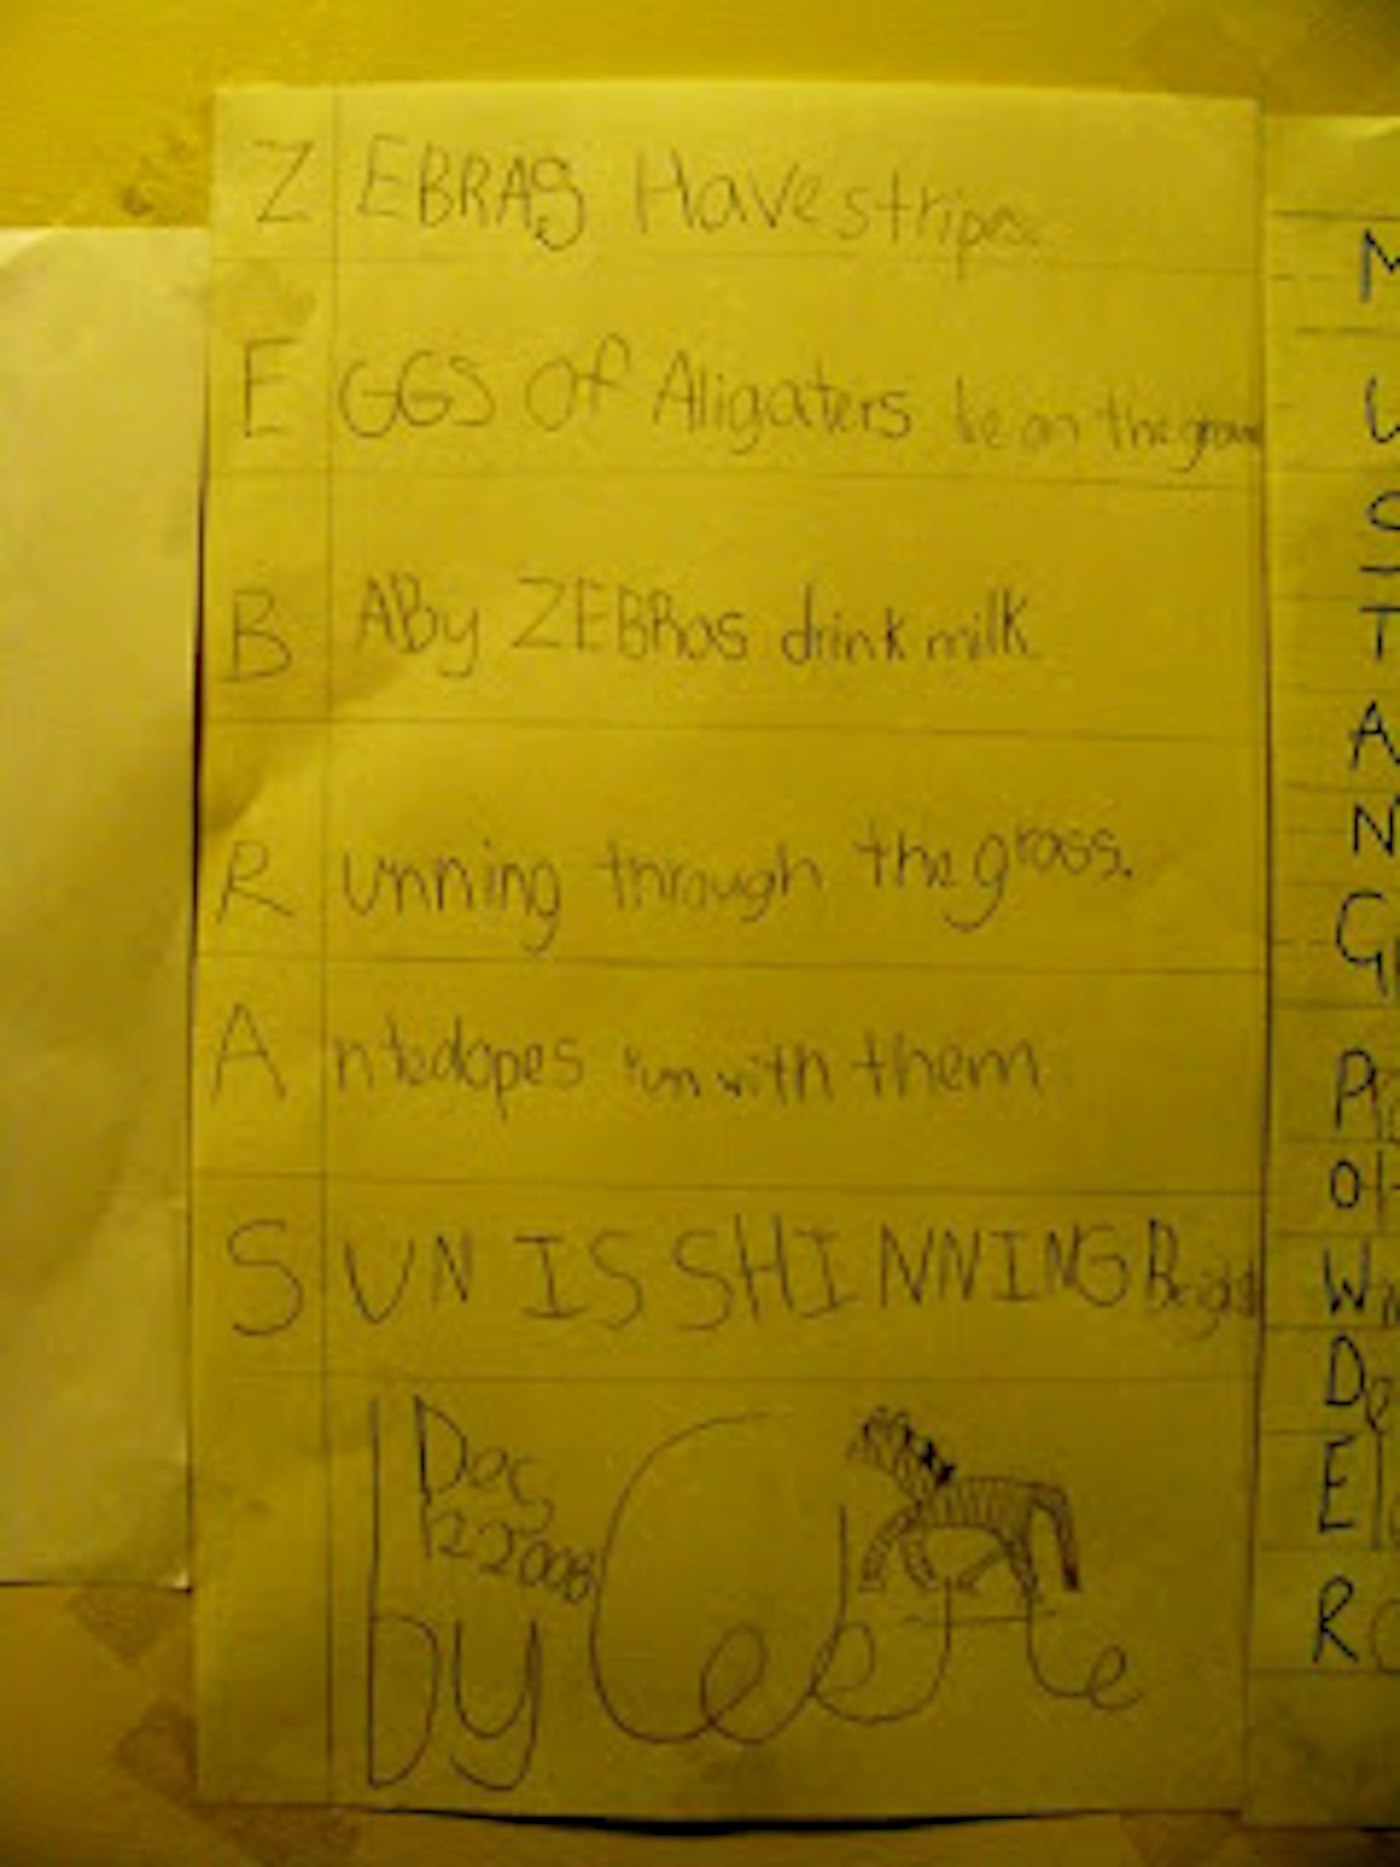 ZEBRAS Have stripes.
EGGS Of Alligaters lie on the groun
BABy ZEBRas drink milk
Running through the grass.
Antedopes run with them
SUN IS SHINNING
Dec,
12 2006
by
M
U
S
T
A
N
G
P
O
W
D
E
R